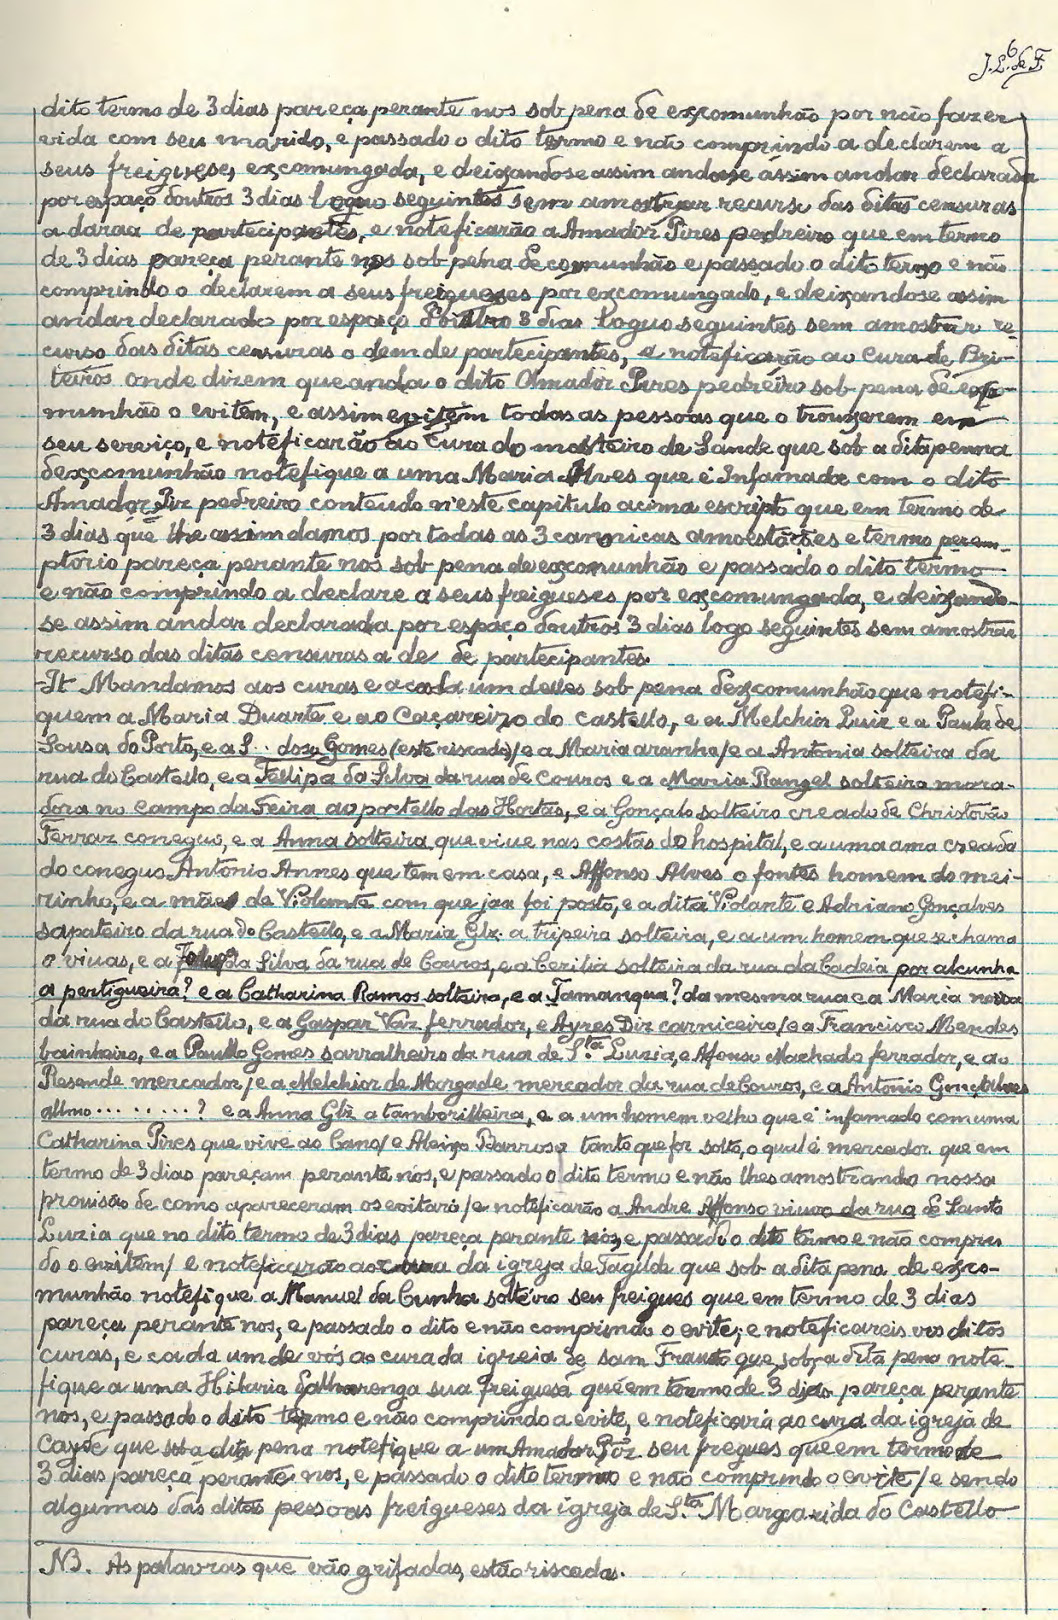 6
J.L. de F.
dito termo de 3 dias pareça perante nos sob pena de exçomunhão por não fazer
vida com seu marido, e passado o dito termo e não comprindo a declarem a
seus freigueses, exçomungada, e deixandose assim andar declarada
por espaço doutros 3 dias loguo seguintes sem amostrar recurso das ditas censuras
a daraa de partecipantes, e noteficarão a Amador Pires pedreiro que em termo
de 3 dias pareça perante nos sob pena de comunhão e passado o dito termo e não
comprindo o declarem a seus freigueses por exçomungado, e deixandose assim
andar declarado por espaço doutro 3 dias loguo seguintes sem amostrar re-
curso das ditas censuras o dem de partecipantes, e noteficarão ao Cura de Bri-
teiros onde dizem que anda o dito Amador Pires pedreiro sob pena de exço-
munhão o evitem, e assim evitem todas as pessoas que o trouxerem em
seu serviço, e noteficarão ao Cura do mosteiro de Sande que sob a dita penna
dexçomunhão notefique a uma Maria Alves que é Infamada com o dito
Amador Piz pedreiro contendo n'este capitulo acima escripto que em termo de
3 dias que lhe assindamos por todas as 3 cannicas amoestações e termo perem-
ptorio pareça perante nos sob pena de exçomunhão e passado o dito termo
e não comprindo a declare a seus freigueses por exçomungada, e deixando-
se assim andar declarada por espaço doutros 3 dias logo seguintes sem amostrar
recurso das ditas censuras a de de partecipantes.
It Mandamos aos curas e a cada um delles sob pena dexçomunhão que notefi-
quem a Maria Duarte e ao Caçareizo do castello, e a Melchior Luiz e a Paula de
Sousa do Porto, e a S.. Gomes (este riscado)/e a Maria aranha/e a Antonia solteira da
rua do Castello, e a Fellipa da Silva da rua de Couros e a Maria Rangel solteira mora-
dora no campo da Feira ao portello das Hortas, e a Gonçalo solteiro creado de Christovão
Ferraz coneguo, e a Anna solteira que vive nas costas do hospital, e a uma ama creada
do coneguo Antonio Annes que tem em casa, e Affonso Alves o fontes homem do mei-
rinho, e a mãe de Violante com que jaa foi posto, e a dita Violante e Adriano Gonçalves
sapateiro da rua do Castello, e a Maria Glz. a tripeira solteira, e a um homem que se chama
o viuas, e a da Silva da rua de Couros, e a Cezilia solteira da rua da Cadeia por alcunha
a pertigueira? e a Catharina Ramos solteira, e a Tamanqua? da mesma rua e a Maria
da rua do Castello, e a Gaspar Vaz ferrador, e Ayres Diz carniceiro/e a Francisco Mendes
bainheiro, e a Paullo Gomes sarralheiro da rua de S.ta Luzia, e Afonso Machado ferrador, e ao
Resende mercador/e a Melchior de Morgade mercador da rua de Couros, e a Antonio Gonçalves
allmo.........? e a Anna Glz a tamborilleira, e a um homem velho que é infamado com uma
Catharina Pires que vive ao Cano/e Aleixo Barroso tanto que for solto, o qual é mercador que em
termo de 3 dias pareçam perante nós, e passado o dito termo e não lhes amostrando nossa
provisão de como apareceram os evitará/e noteficarão a Andre Affonso viuvo da rua de Santa
Luzia que no dito termo de 3 dias pareça perante nós, e passado o dito termo e não comprin
do o evitem/ e noteficarão ao cura da igreja de Tagilde que sob a dita pena de exço-
munhão notefique a Manuel da Cunha solteiro seu freigues que em termo de 3 dias
pareça perante nos, e passado o dito e não comprindo o evite, e noteficareis vos ditos
curas, e cada um de vós ao cura da igreia de sam que sob a dita pena note-
fique a uma Hilaria sua freiguesa que em termo de 3 dias pareça perante
nos, e passado o dito termo e não comprindo a evite, e noteficaria ao cura da igreja de
Cayde que sob a dita pena notefique a um Amador Piz seu fregues que em termo de
3 dias pareça perante nos, e passado o dito termo e não comprindo o evite/e sendo
algumas das ditas pessoas freigueses da igreja de S.ta Margarida do Castello
NB. As palavras que vão grifadas, estão riscadas.